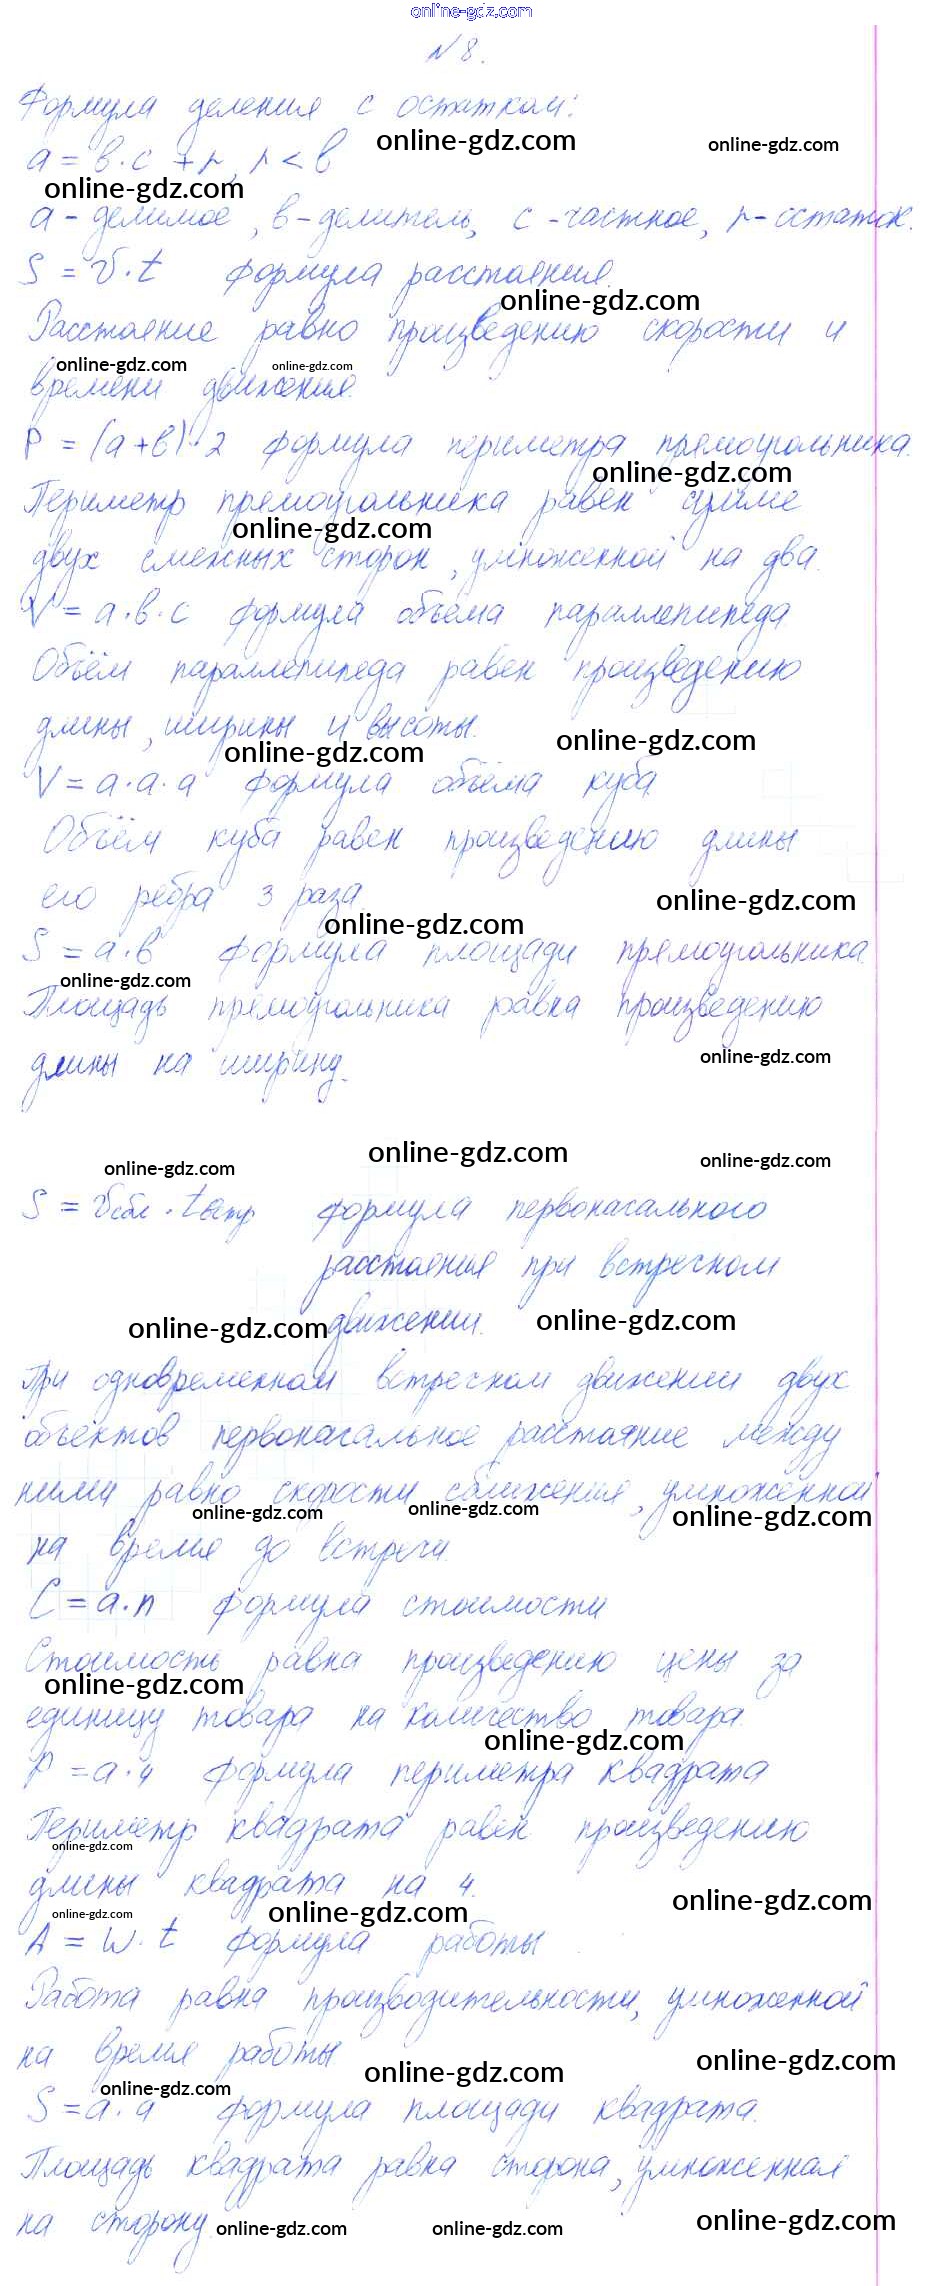 online-gdz.com
№8.
Формула деления с остатком:
online-gdz.com online-gdz.com
a = в·c + r, r < в
online-gdz.com
a - делимое, в - делитель, c - частное, r - остаток.
S = v·t формула расстояния.
online-gdz.com
Расстояние равно произведению скорости и
online-gdz.com online-gdz.com
времени движения.
P = (a+в)·2 формула периметра прямоугольника.
online-gdz.com
Периметр прямоугольника равен сумме
online-gdz.com
двух смежных сторон, умноженной на два.
V = a·в·c формула объёма параллепипеда
Объём параллепипеда равен произведению
длины, ширины и высоты.
online-gdz.com online-gdz.com
V = a·a·a формула объёма куба
Объём куба равен произведению длины
его ребра 3 раза.
online-gdz.com online-gdz.com
S = a·в формула площади прямоугольника.
online-gdz.com
Площадь прямоугольника равна произведению
длины на ширину.
online-gdz.com
online-gdz.com online-gdz.com online-gdz.com
S = vсбл · tвстр формула первоначального
расстояния при встречном
движении.
online-gdz.com online-gdz.com
При одновременном встречном движении двух
объектов первоначальное расстояние между
ними равно скорости сближения, умноженной
online-gdz.com online-gdz.com online-gdz.com
на время до встречи.
C = a·n формула стоимости
Стоимость равна произведению цены за
online-gdz.com
единицу товара на количество товара.
online-gdz.com
P = a·4 формула периметра квадрата
Периметр квадрата равен произведению
online-gdz.com
длины квадрата на 4.
online-gdz.com online-gdz.com online-gdz.com
A = w·t формула работы
Работа равна производительности, умноженной
на время работы
online-gdz.com online-gdz.com online-gdz.com
S = a·a формула площади квадрата.
Площадь квадрата равна сторона, умноженная
на сторону.
online-gdz.com online-gdz.com online-gdz.com